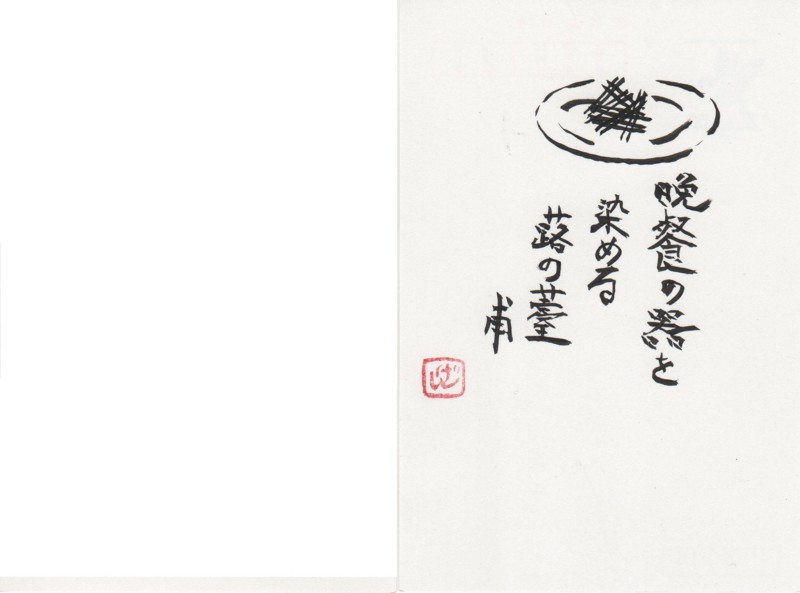 晩餐の器を
染める
蕗の薹
甫